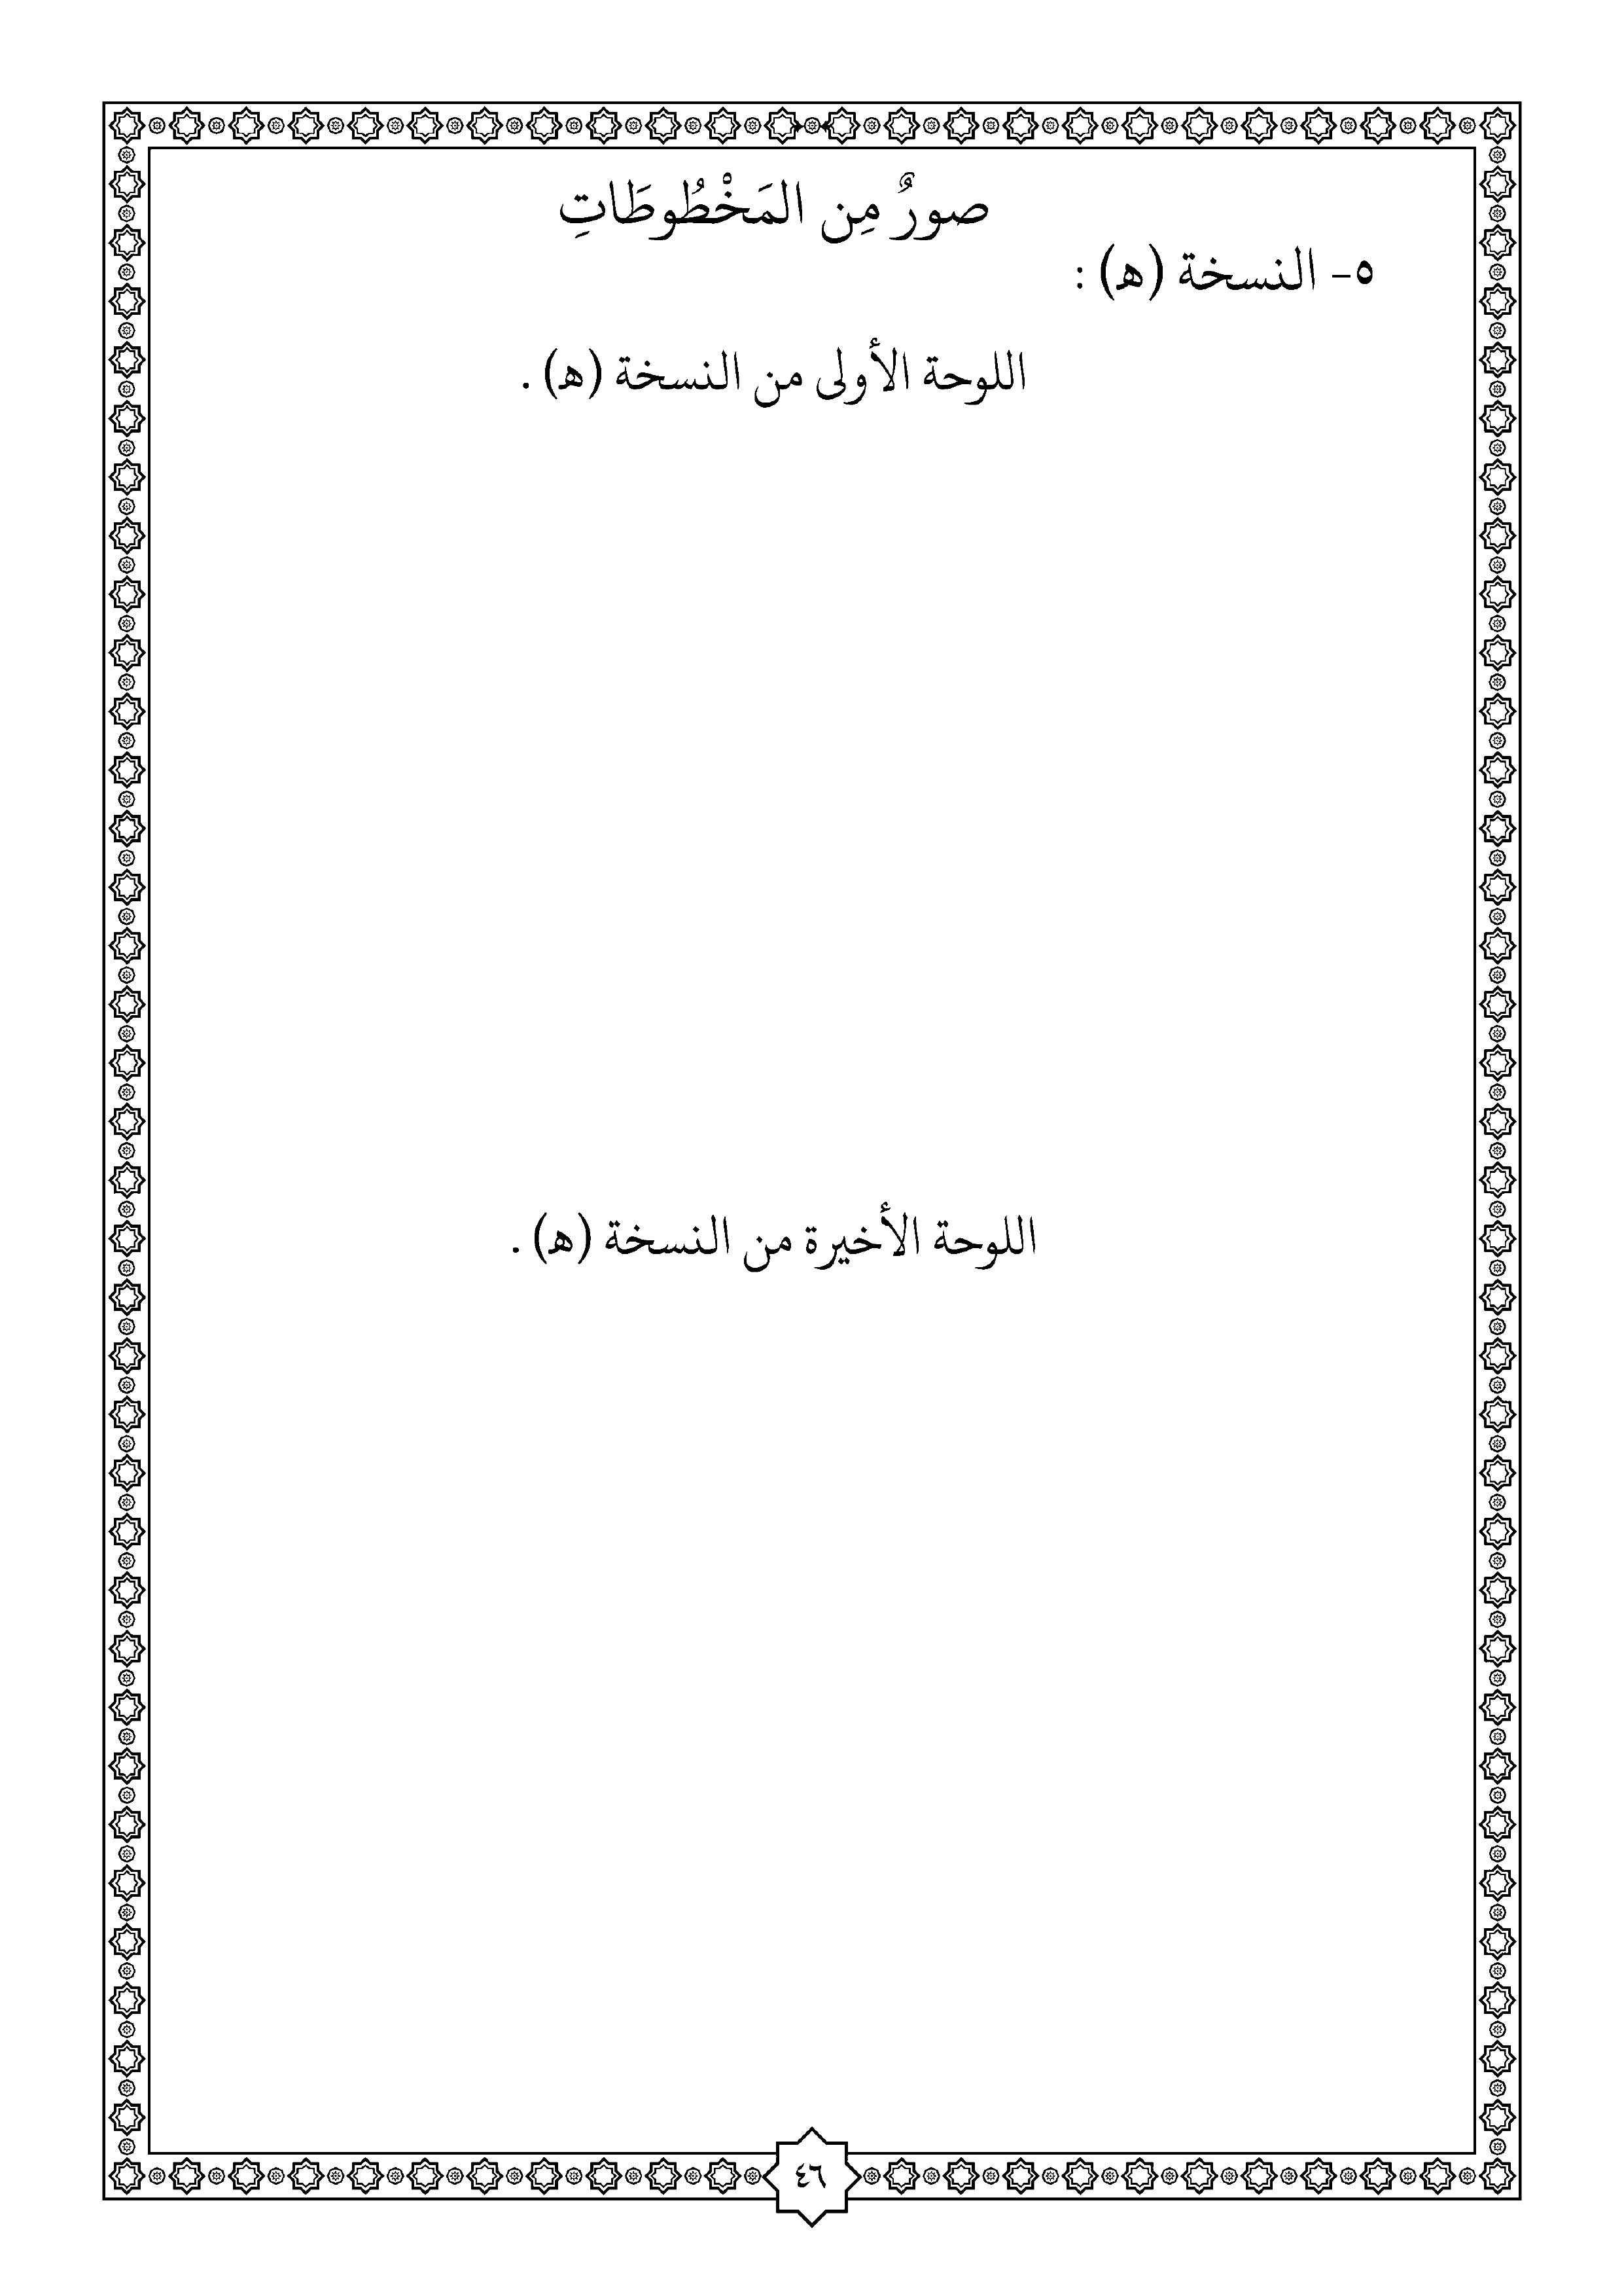 صورٌ مِن المَخْطُوطَاتِ
٥- النسخة (ﻫ) :
اللوحة الأولى من النسخة (ﻫ) .
اللوحة الأخيرة من النسخة (ﻫ) .
٤٦